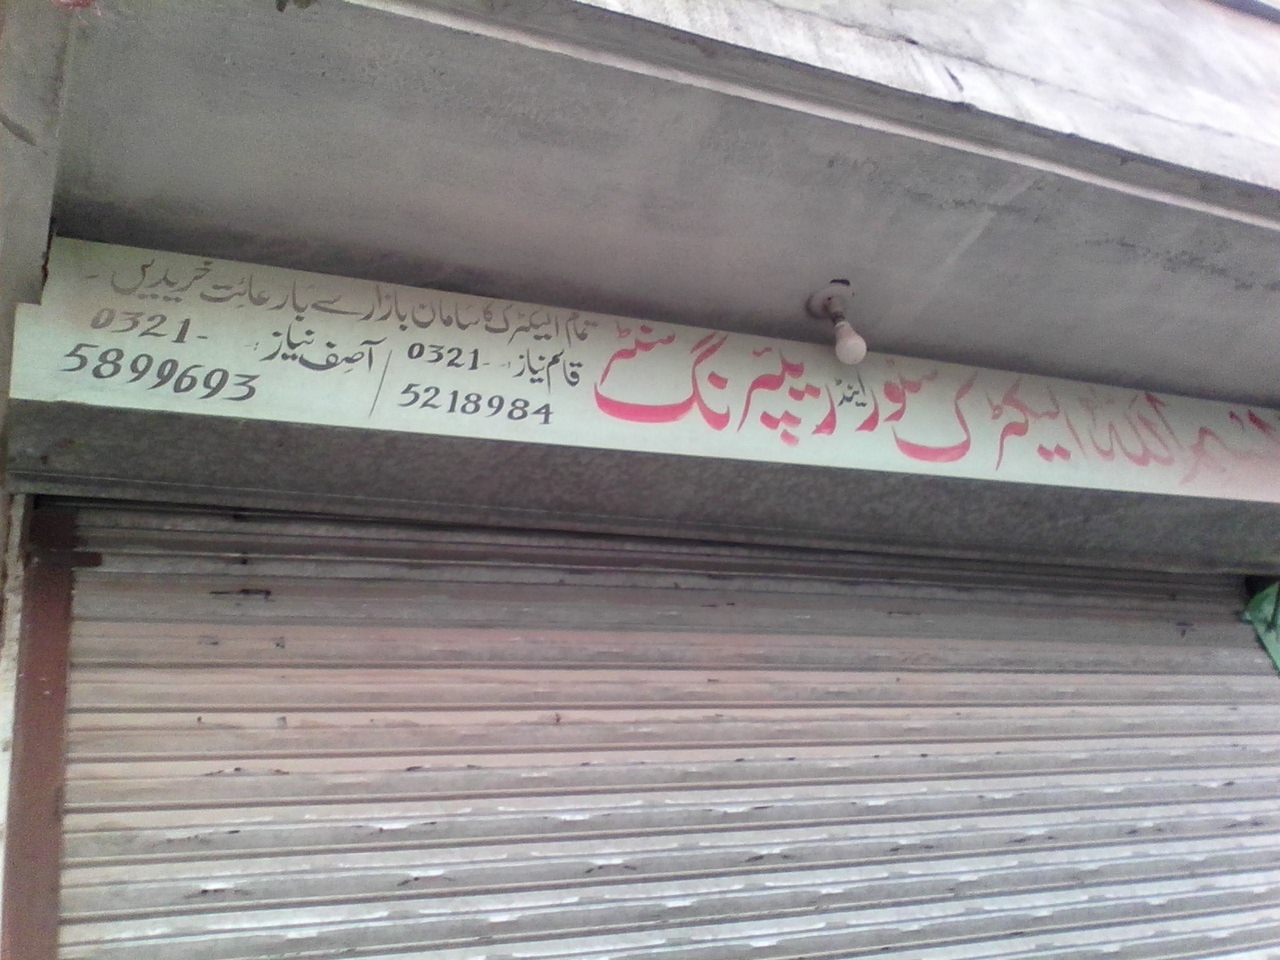 بسم اللہ الیکٹرک سٹور اینڈ ریپئرنگ سنٹر
تمام الیکٹرک کا سامان بازار سے بارعائت خریدیں۔
قاسم نیاز: 0321-
5218984
آصف نیاز: 0321-
5899693